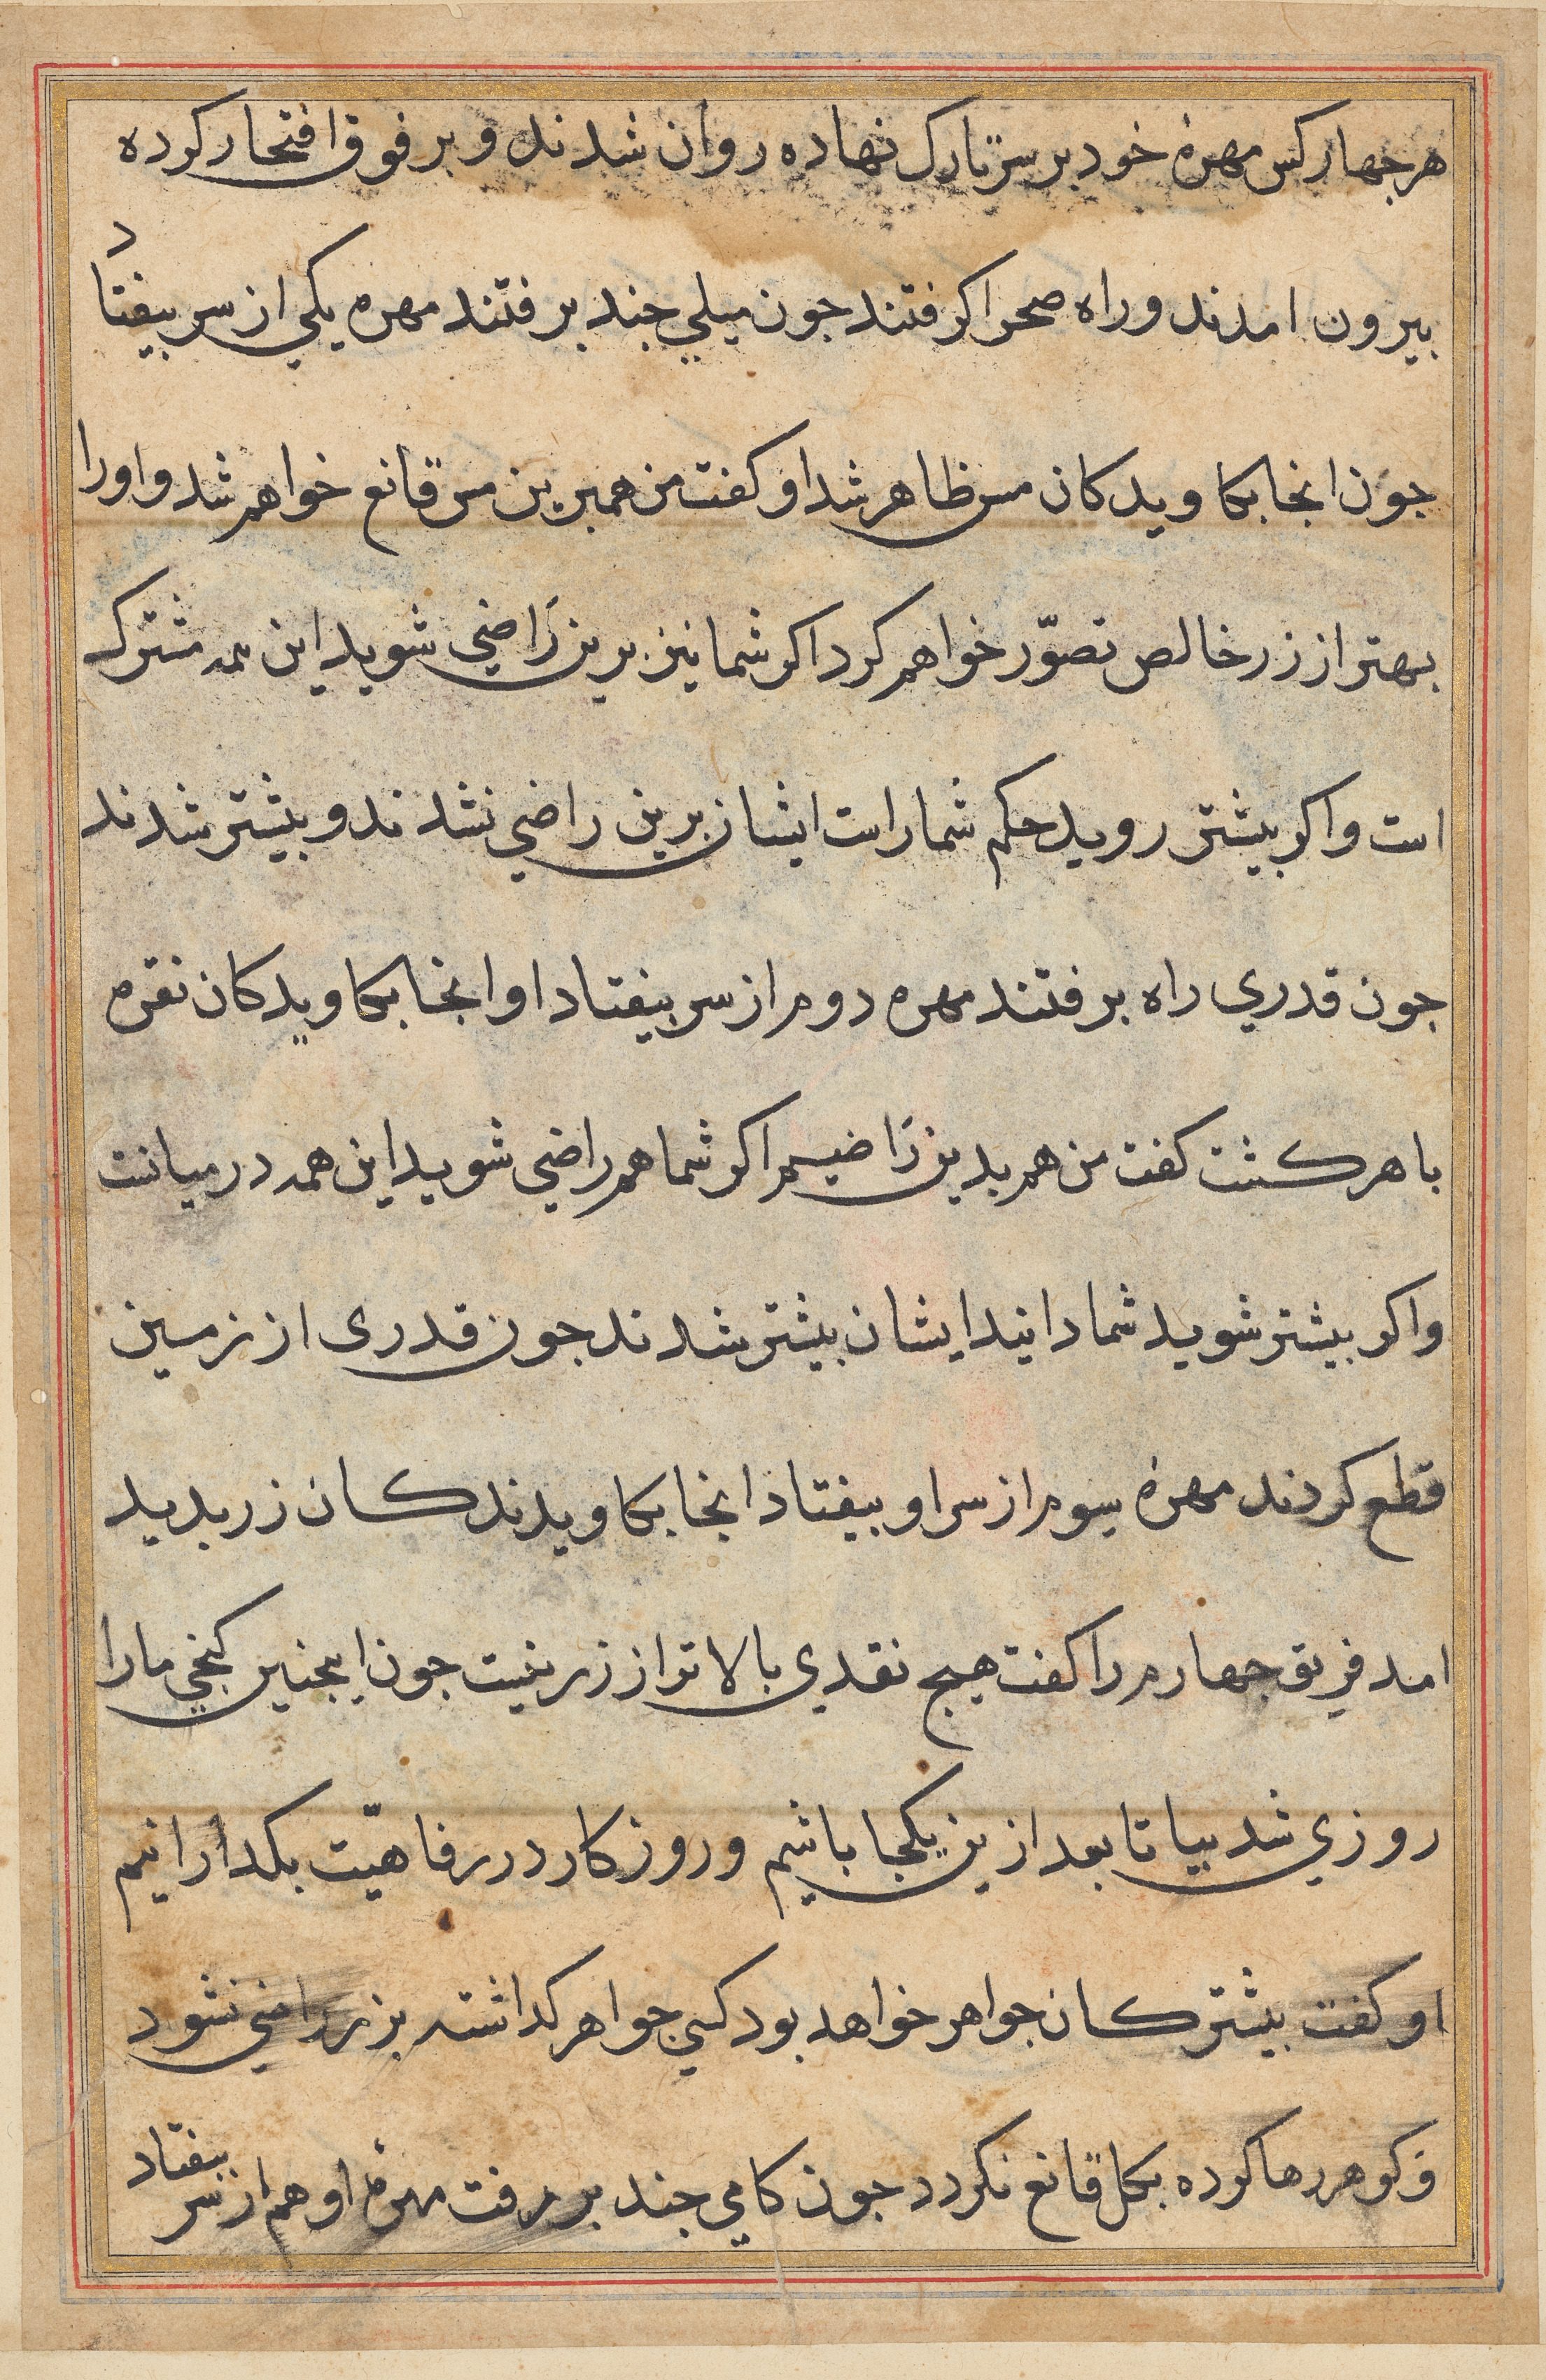 هر جهار کس مهرهٔ خود بر سر تارک نهاده روان شدند و بر فوق افتخار کرده
بیرون امدند و راه صحرا کرفتند جون میلي جند برفتند مهره یکي از سر بیفتاد
جون انجا بکاوید کان مس ظاهر شد او کفت من همبرین مس قانع خواهم شد و اورا
بهتر از زر خالص تصوّر خواهم کرد اکر شما نیز برین رَاضي شوید این همه مشترک
است و اکر بیشتر روید حکم شماراست ایشان برین راضي نشدند و بیشتر شدند
جون قدري راه برفتند مهره دوم از سر بیفتاد او انجا بکاوید کان نقره
باهر کشت کفت من هم بدین رَاضیم اکر شما هم راضي شوید این همه در میانست
و اکر بیشتر شوید شما دانید ایشان بیشتر شدند جون قدری از زمین
قطع کردند مهرهٔ سوم از سر او بیفتاد انجا بکاویدند کان زر بدید
امد فریق جهارم را کفت هیج نقدي بالاتر از زر نیست جون اینجنین کنجي مارا
روزي شد بیا تا بعد ازین یکجا باشیم و روزکار در رفاهیّت بکدارانیم
او کفت بیشتر کان جواهر خواهد بود کسي جواهر کداشته بزر راضي نشود
و کوهر رها کرده بکل قانع نکردد جون کامي جند برفت مهرهٔ او هم از سر بیفتاد